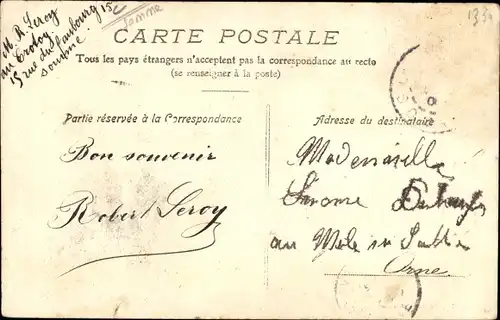 M. R. Leroy
au Crotoy
15 rue du faubourg
Somme
15c
Somme
133
CARTE POSTALE
Tous les pays étrangers n'acceptent pas la correspondance au recto
(se renseigner à la poste)
Partie réservée à la Correspondance
Adresse du destinataire
Bon souvenir
Robert Leroy
Mademoiselle
au Mele sur Sarthe
Orne